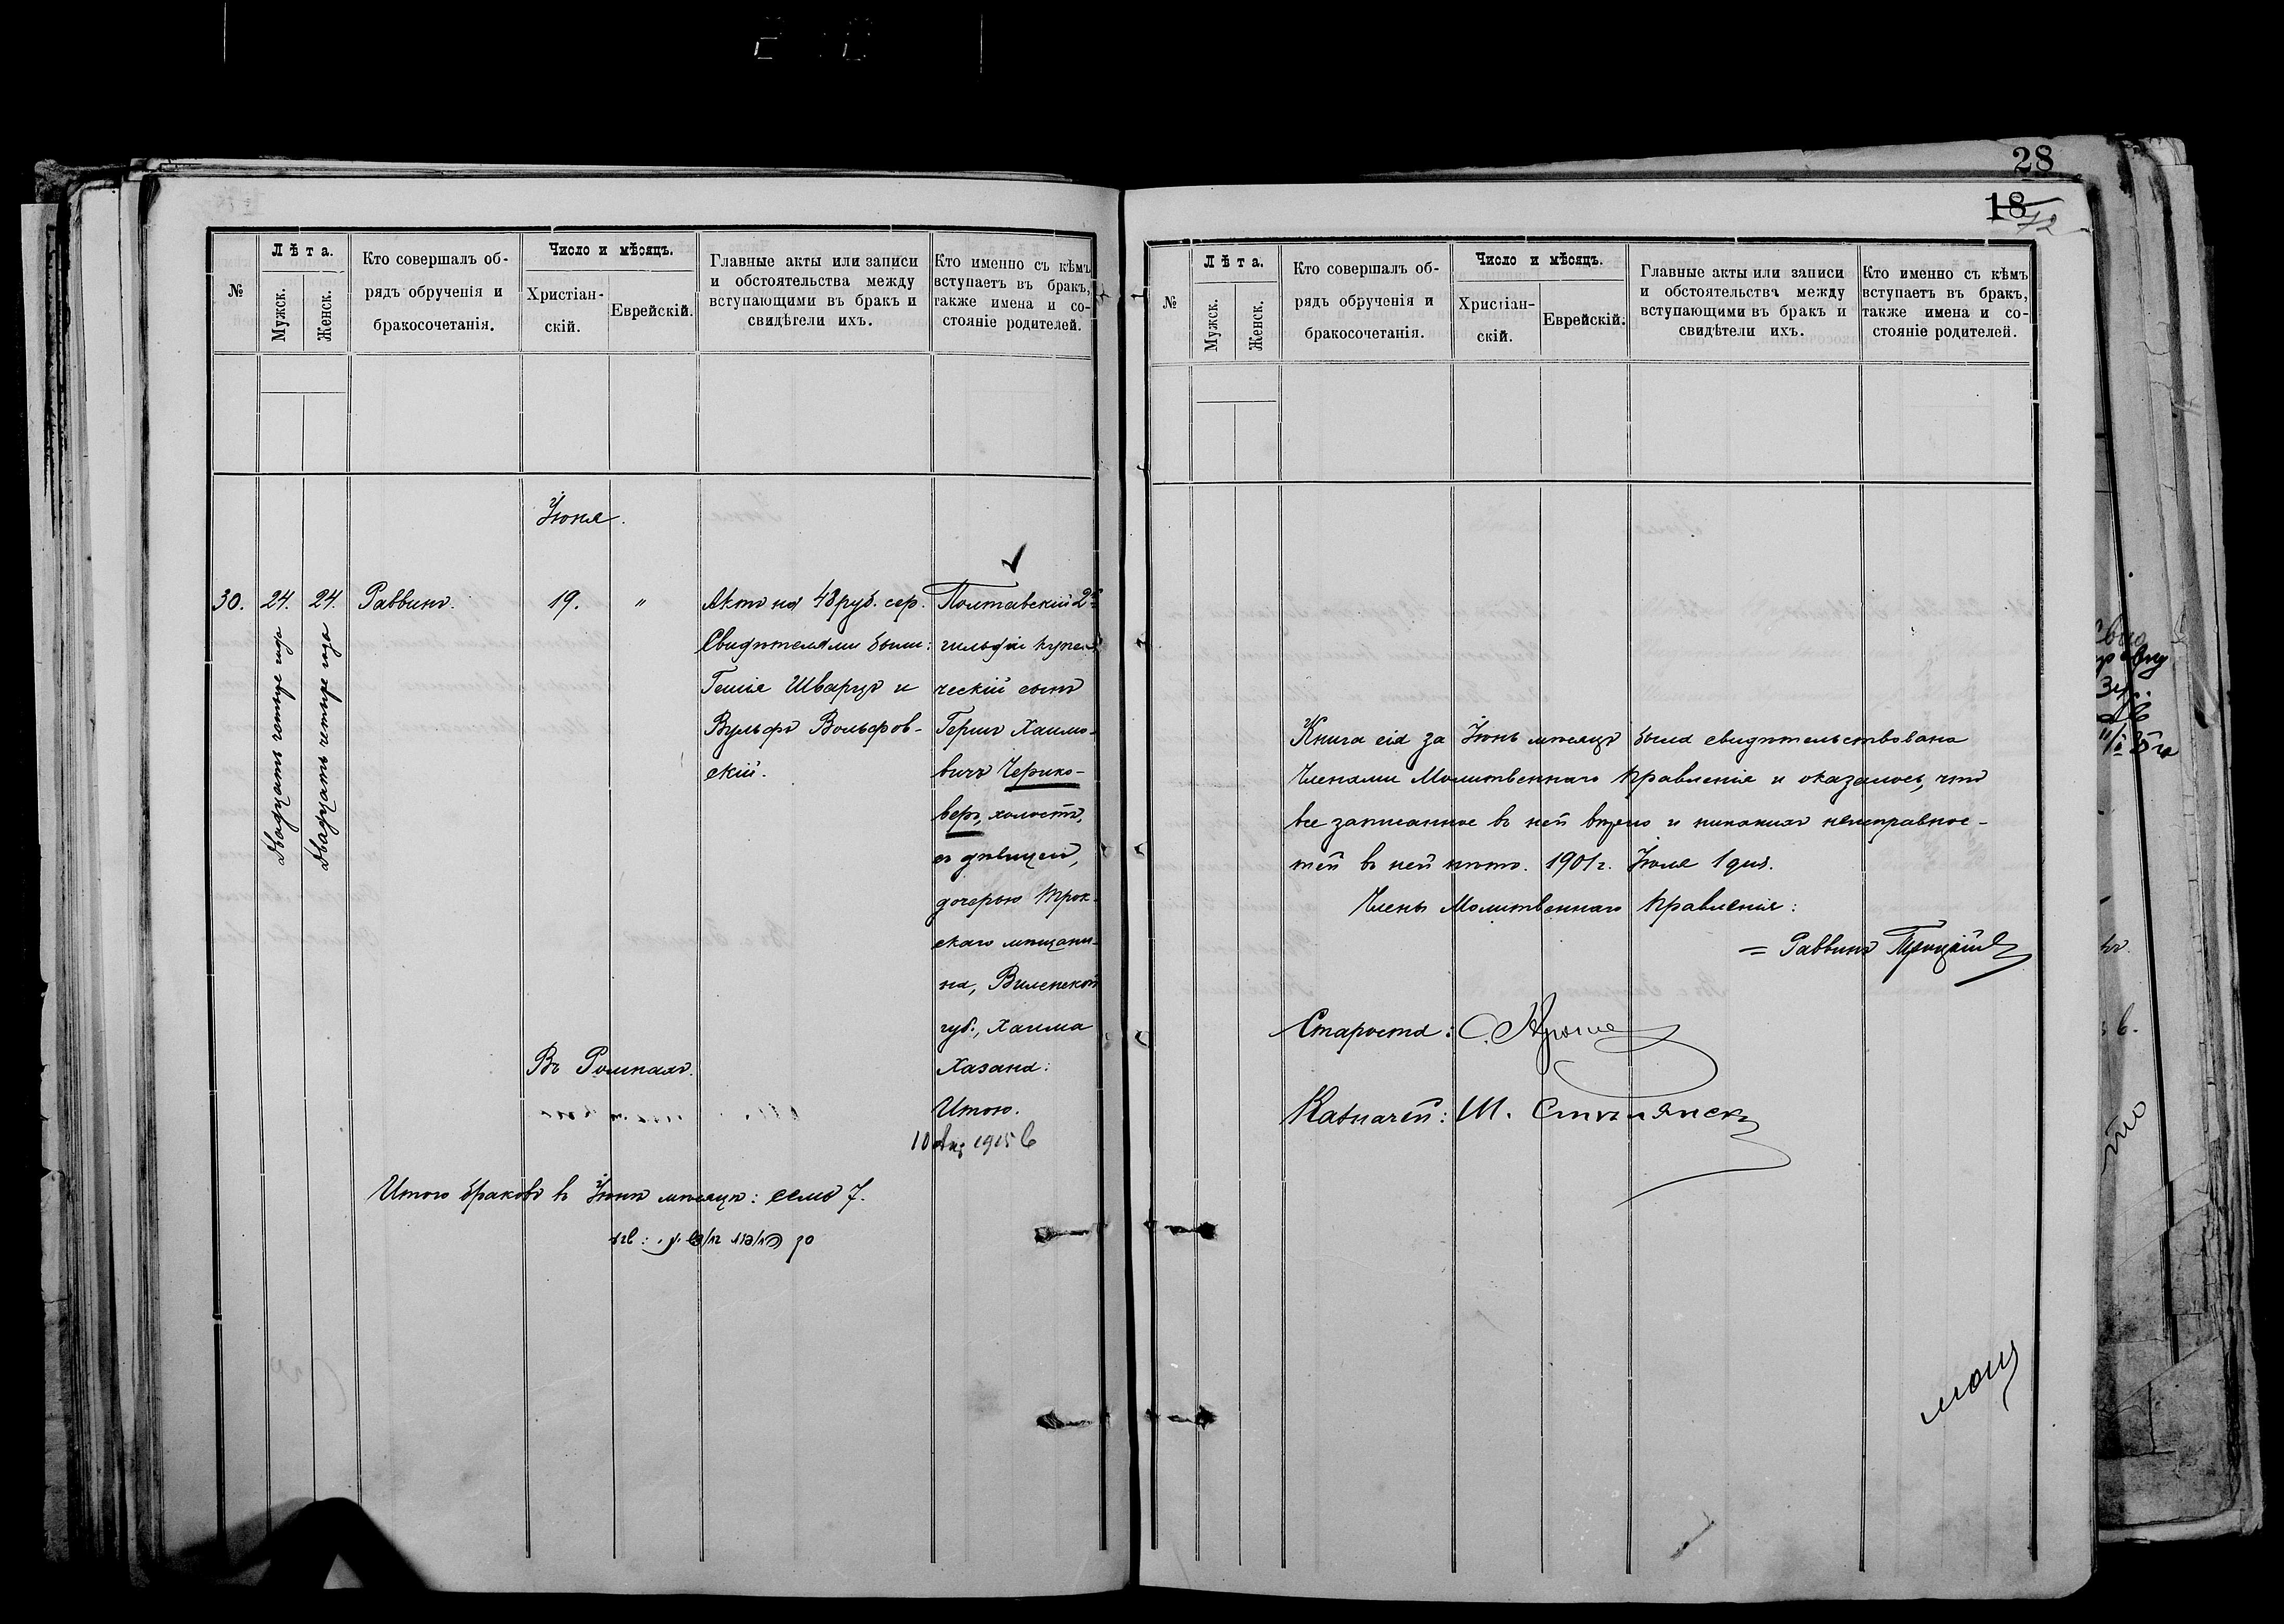 28
18
72
№
Лѣта.
Мужск.
Женск.
Кто совершалъ об-
рядъ обрученія и
бракосочетанія.
Число и мѣсяцъ.
Христіан-
скій.
Еврейскій.
Главные акты или записи
и обстоятельства между
вступающими въ бракъ и
свидѣтели ихъ.
Кто именно съ кѣмъ
вступаетъ въ бракъ,
также имена и со-
стояніе родителей.
Іюня.
30.
24.
двадцать четыре года
24.
двадцать четыре года
Раввинъ.
19.
"
Въ Ромнахъ.
Актъ на 48 руб. сер.
Свидѣтелями были:
Шварцъ и
Вульфъ Вольфов-
скій.
Полтавскій 2й
гильдіи купе-
ческій сынъ
Гершъ Хаимо-
вичъ Черико-
веръ, холостъ,
съ дѣвицей,
дочерью Трок-
скаго мѣщани-
на, Виленской
губ., Хаима
Хазана:
Итого браковъ въ Іюнѣ мѣсяцѣ: семь 7.
№
Лѣта.
Мужск.
Женск.
Кто совершалъ об-
рядъ обрученія и
бракосочетанія.
Число и мѣсяцъ.
Христіан-
скій.
Еврейскій.
Главные акты или записи
и обстоятельства между
вступающими въ бракъ и
свидѣтели ихъ.
Кто именно съ кѣмъ
вступаетъ въ бракъ,
также имена и со-
стояніе родителей.
Книга сія за Іюнь мѣсяцъ была свидѣтельствована
Членами Молитвеннаго Правленія и оказалось, что
все записанное въ ней вѣрно и никакихъ неисправнос-
тей въ ней нѣтъ. 1901 г. Іюля 1 дня.
Члены Молитвеннаго Правленія:
= Раввинъ
Староста:
Казначей: Ш.